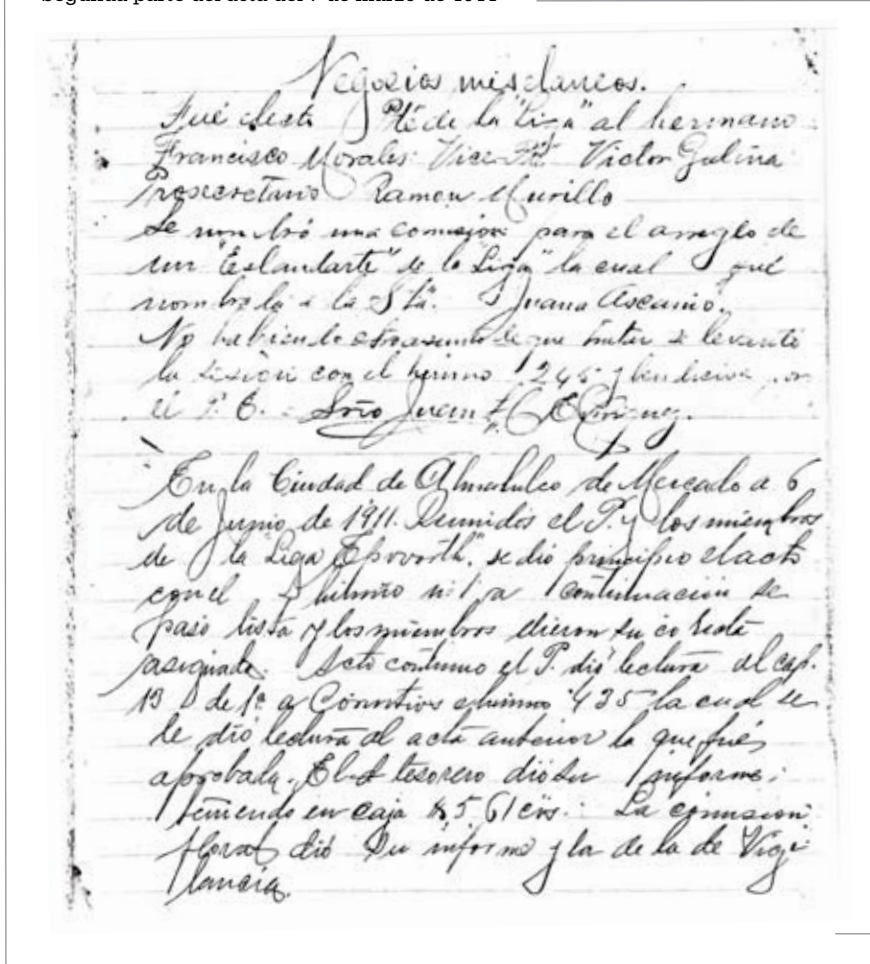 Segunda parte del acta del 7 de marzo de 1911
Negocios misclaneos.
Fué electo Pte de la "Liga" al hermano
Francisco Morales Vice-Pte. Victor Galina
Prosecretario Ramon Murillo
Se nombró una comision para el arreglo de
un "Estandarte" de la "Liga" la cual qué
nombrada a la Sta. Juana Ascanio.
No habiendo otro asunto de que tratar se levantó
la sesión con el himno 245 y bendicion por
el P. E. = Srio Juan
En la Ciudad de Ahualulco de Mercado a 6
de Junio de 1911. Reunidos el P. y los miembros
de la "Liga Epworth", se dio principio el acto
con el himno n. 1 a continuación se
pasó lista y los miembros dieron su
asignada. Acto continuo el P. dió lectura al cap.
13 de 1ª a Corintios e himno 435 la cual se
le dió lectura al acta anterior la que fué
aprobada. El tesorero dió su informe:
teniendo en caja $5.61 cvs. La comision
floral dió su informe y la de la de Vigi-
lancia.